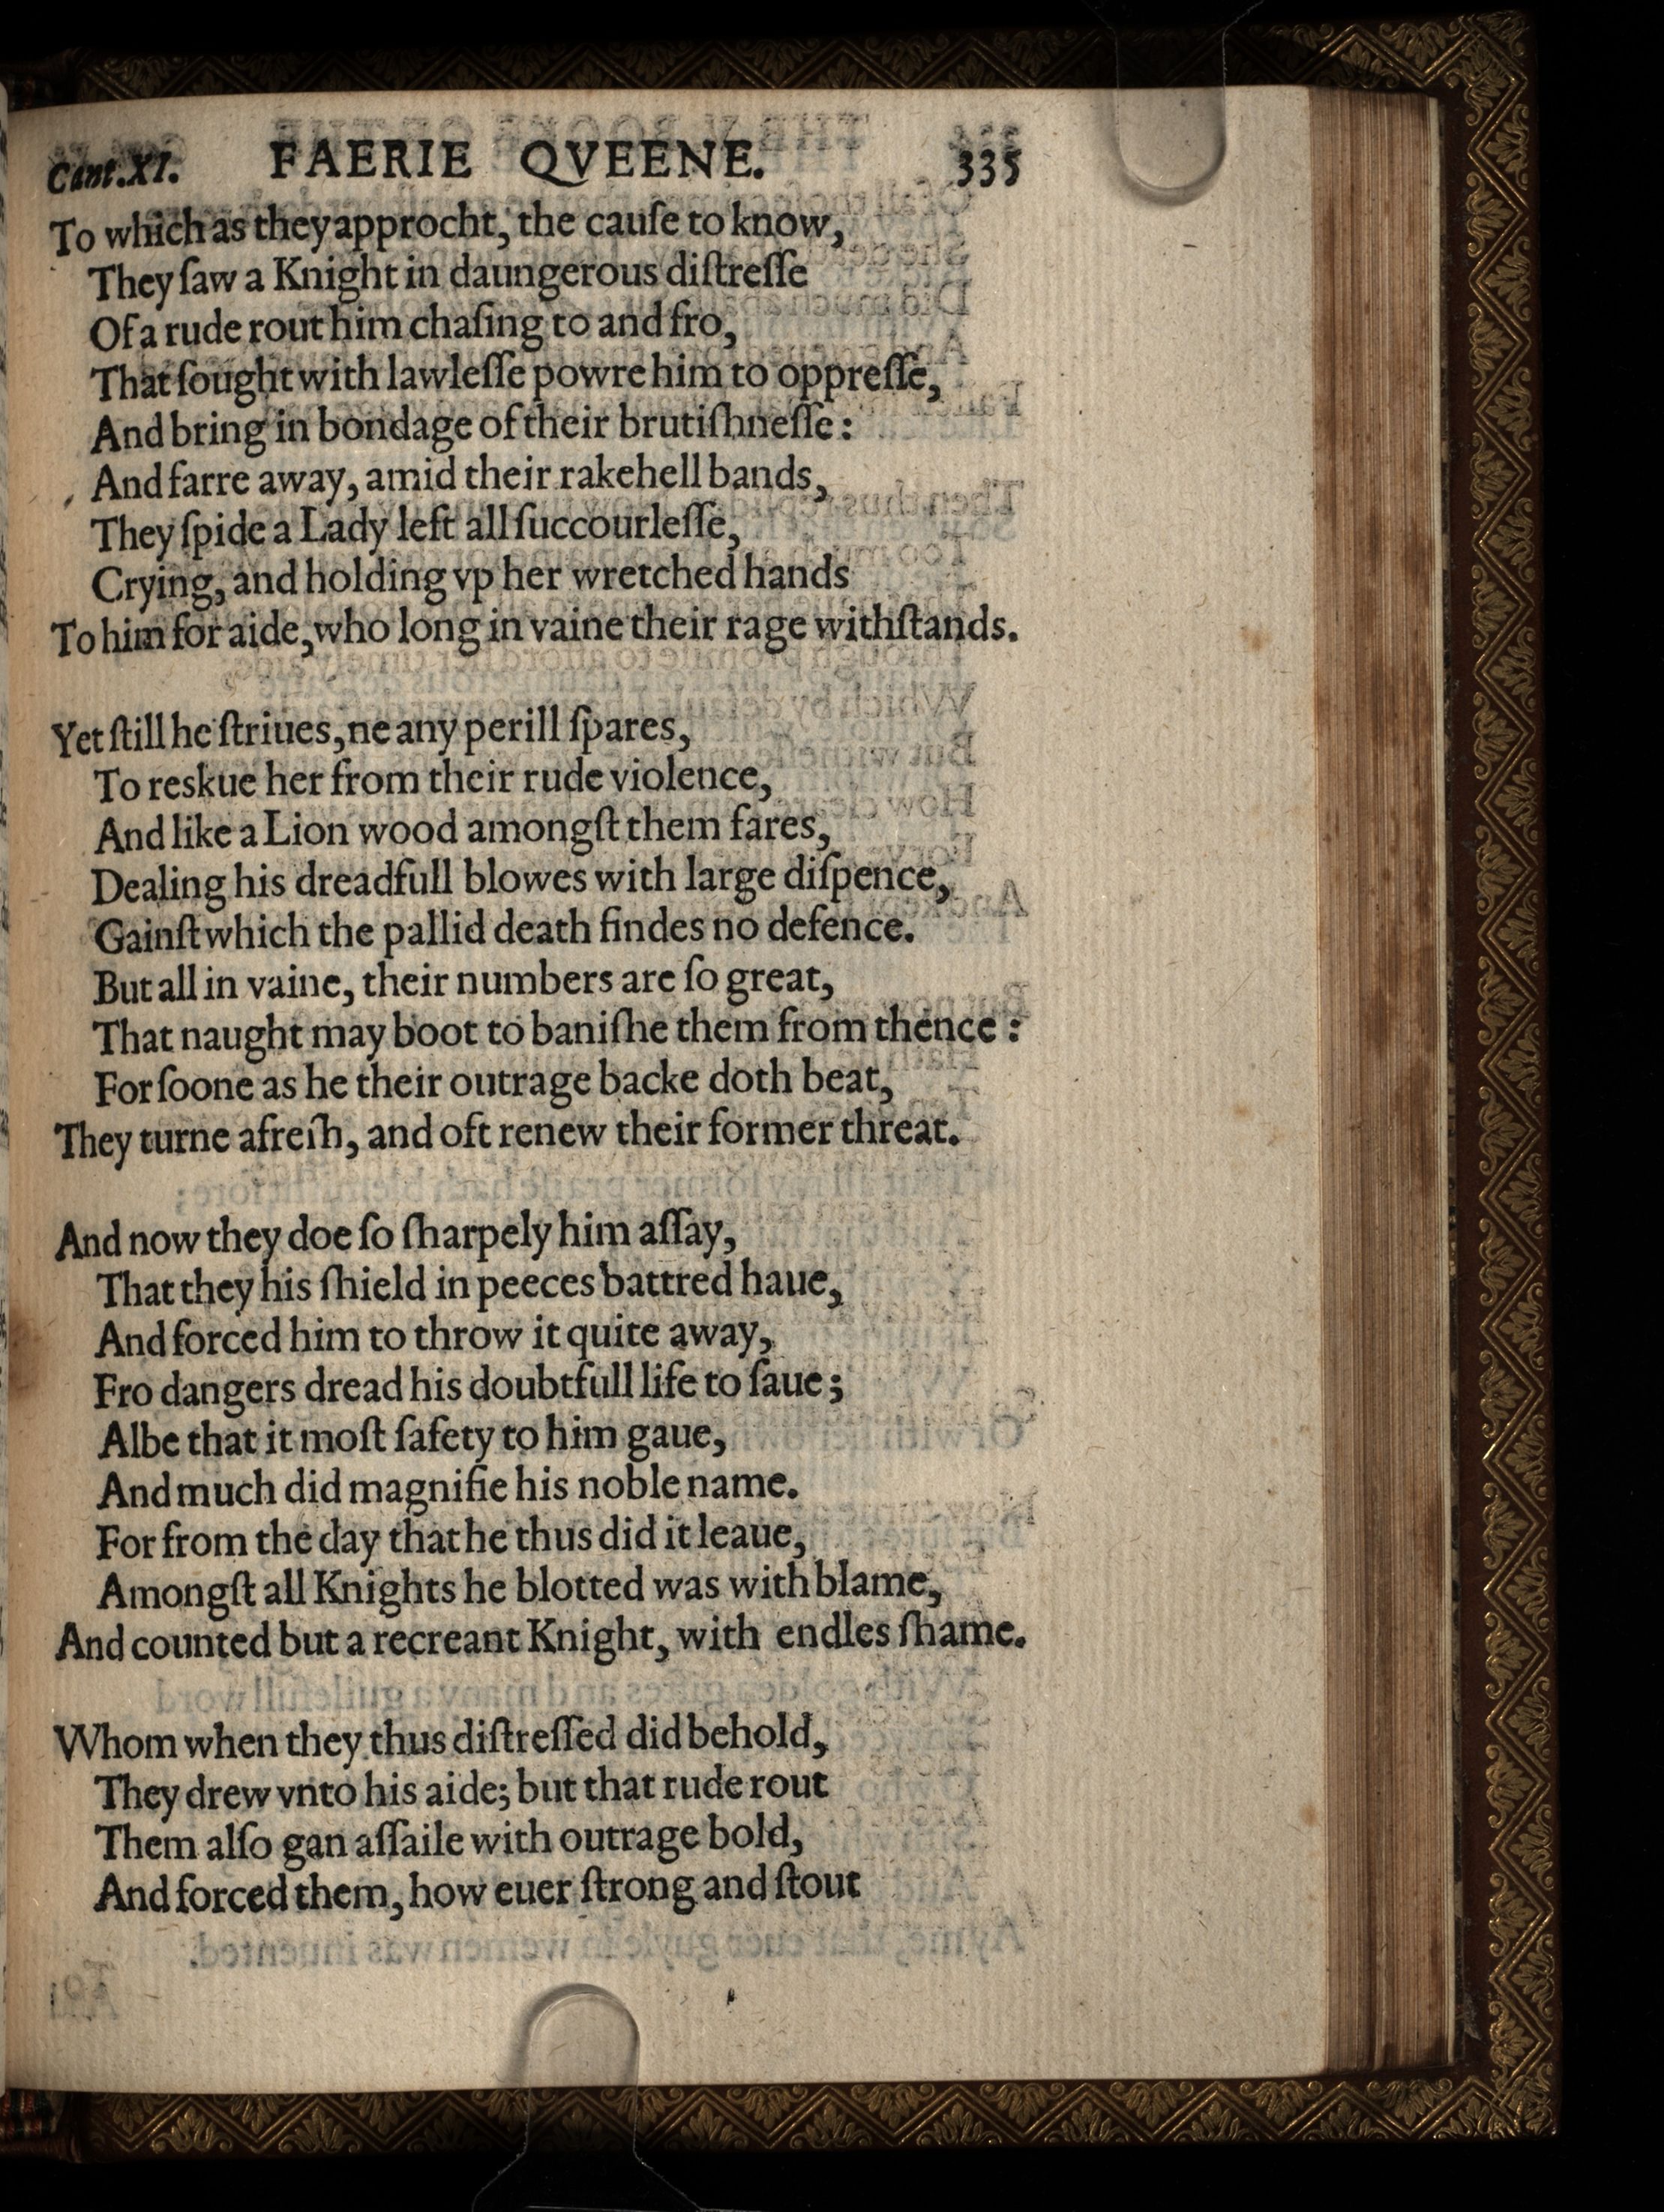 Cant.XI. FAERIE QVEENE. 335
To which as they approcht, the cauſe to know,
They ſaw a Knight in daungerous diſtreſſe
Of a rude rout him chaſing to and fro,
That ſought with lawleſſe powre him to oppreſſe,
And bring in bondage of their brutiſhneſſe:
And farre away, amid their rakehell bands,
They ſpide a Lady left all ſuccourleſſe,
Crying, and holding vp her wretched hands
To him for aide, who long in vaine their rage withſtands.

Yet ſtill he ſtriues, ne any perill ſpares,
To reskue her from their rude violence,
And like a Lion wood amongſt them fares,
Dealing his dreadfull blowes with large diſpence,
Gainſt which the pallid death findes no defence.
But all in vaine, their numbers are ſo great,
That naught may boot to baniſhe them from thence:
For ſoone as he their outrage backe doth beat,
They turne afreſh, and oft renew their former threat.

And now they doe ſo ſharpely him aſſay,
That they his ſhield in peeces battred haue,
And forced him to throw it quite away,
Fro dangers dread his doubtfull life to ſaue;
Albe that it moſt ſafety to him gaue,
And much did magnifie his noble name.
For from the day that he thus did it leaue,
Amongſt all Knights he blotted was with blame,
And counted but a recreant Knight, with endles ſhame.

Whom when they thus diſtreſſed did behold,
They drew vnto his aide; but that rude rout
Them alſo gan aſſaile with outrage bold,
And forced them, how euer ſtrong and ſtout